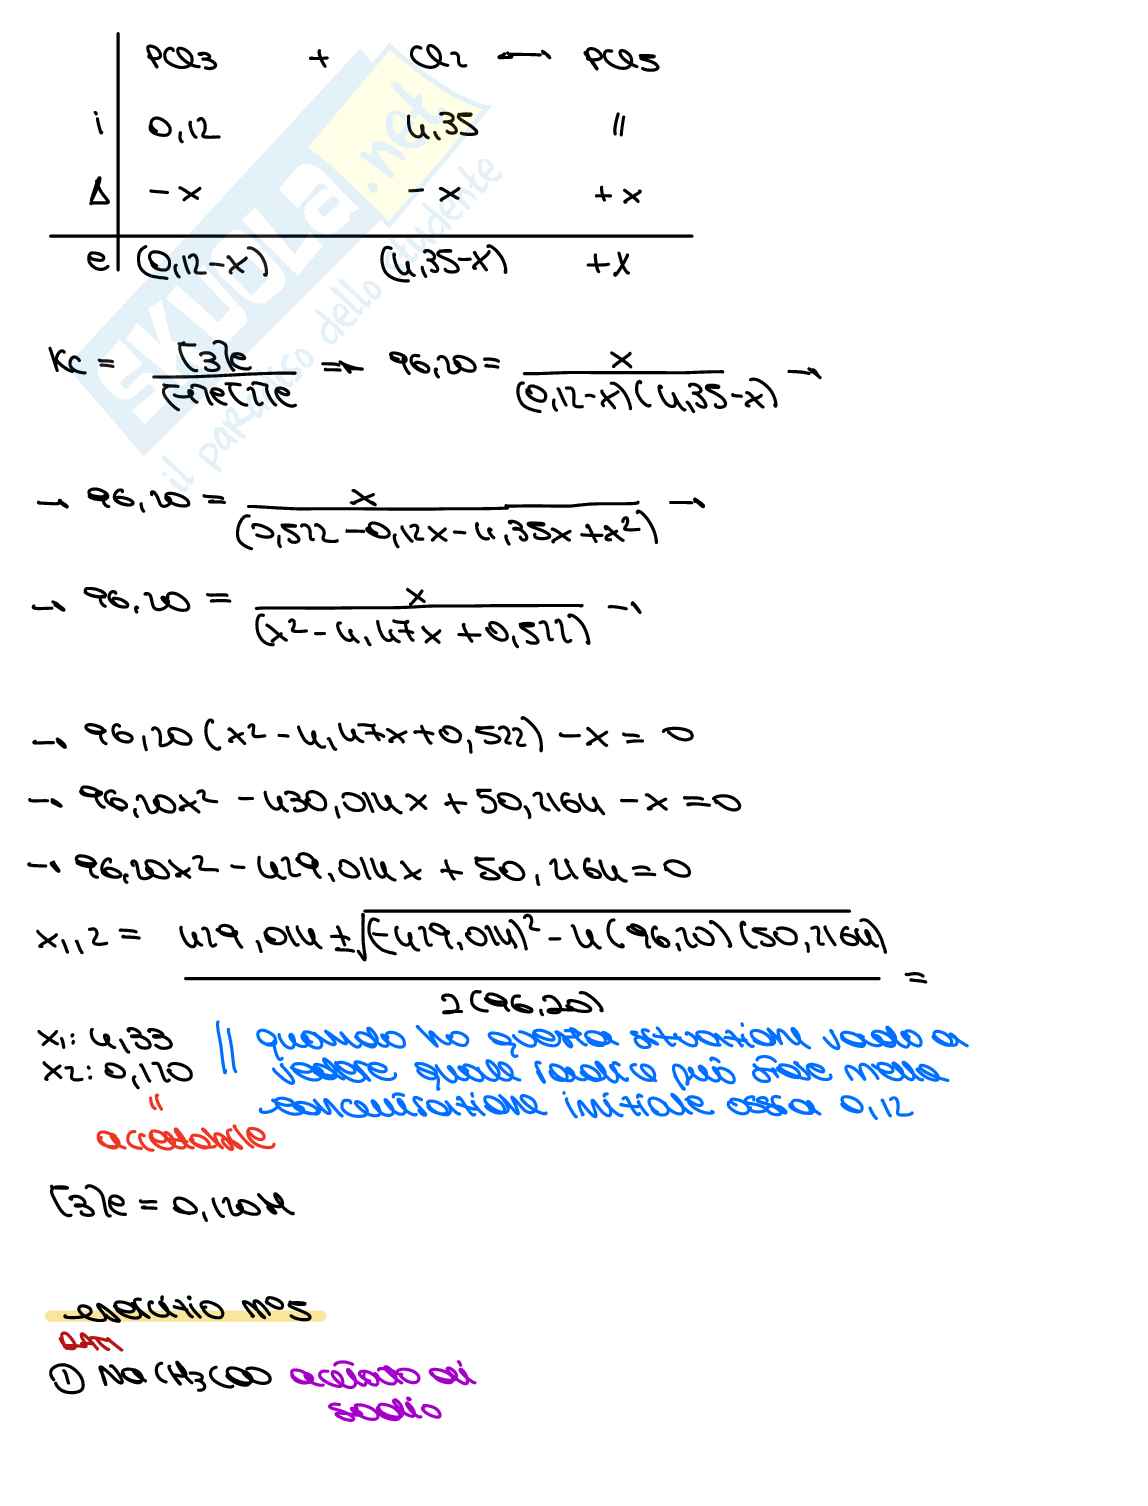 PCl3 + Cl2 ⟷ PCl5
i 0,12 4,35 //
Δ -x -x +x
e (0,12-x) (4,35-x) +x
SKUOLA.net
il paradiso dello studente
Kc = [3]e / [1]e[2]e → 96,20 = x / (0,12-x)(4,35-x) →
→ 96,20 = x / (0,522 -0,12x - 4,35x + x²) →
→ 96,20 = x / (x² - 4,47x + 0,522) →
→ 96,20 (x² - 4,47x + 0,522) - x = 0
→ 96,20x² - 430,014x + 50,2164 - x = 0
→ 96,20x² - 429,014x + 50,2164 = 0
x1,2 = 429,014 ± √(-429,014)² - 4(96,20)(50,2164) / 2(96,20) =
x1: 4,33 // quando ho questa situazione vado a
x2: 0,120 vedere quale radice può stare nella
// concentrazione iniziale ossia 0,12
accettabile
[3]e = 0,120M
esercizio n°5
DATI
① NaCH3COO acetato di
sodio